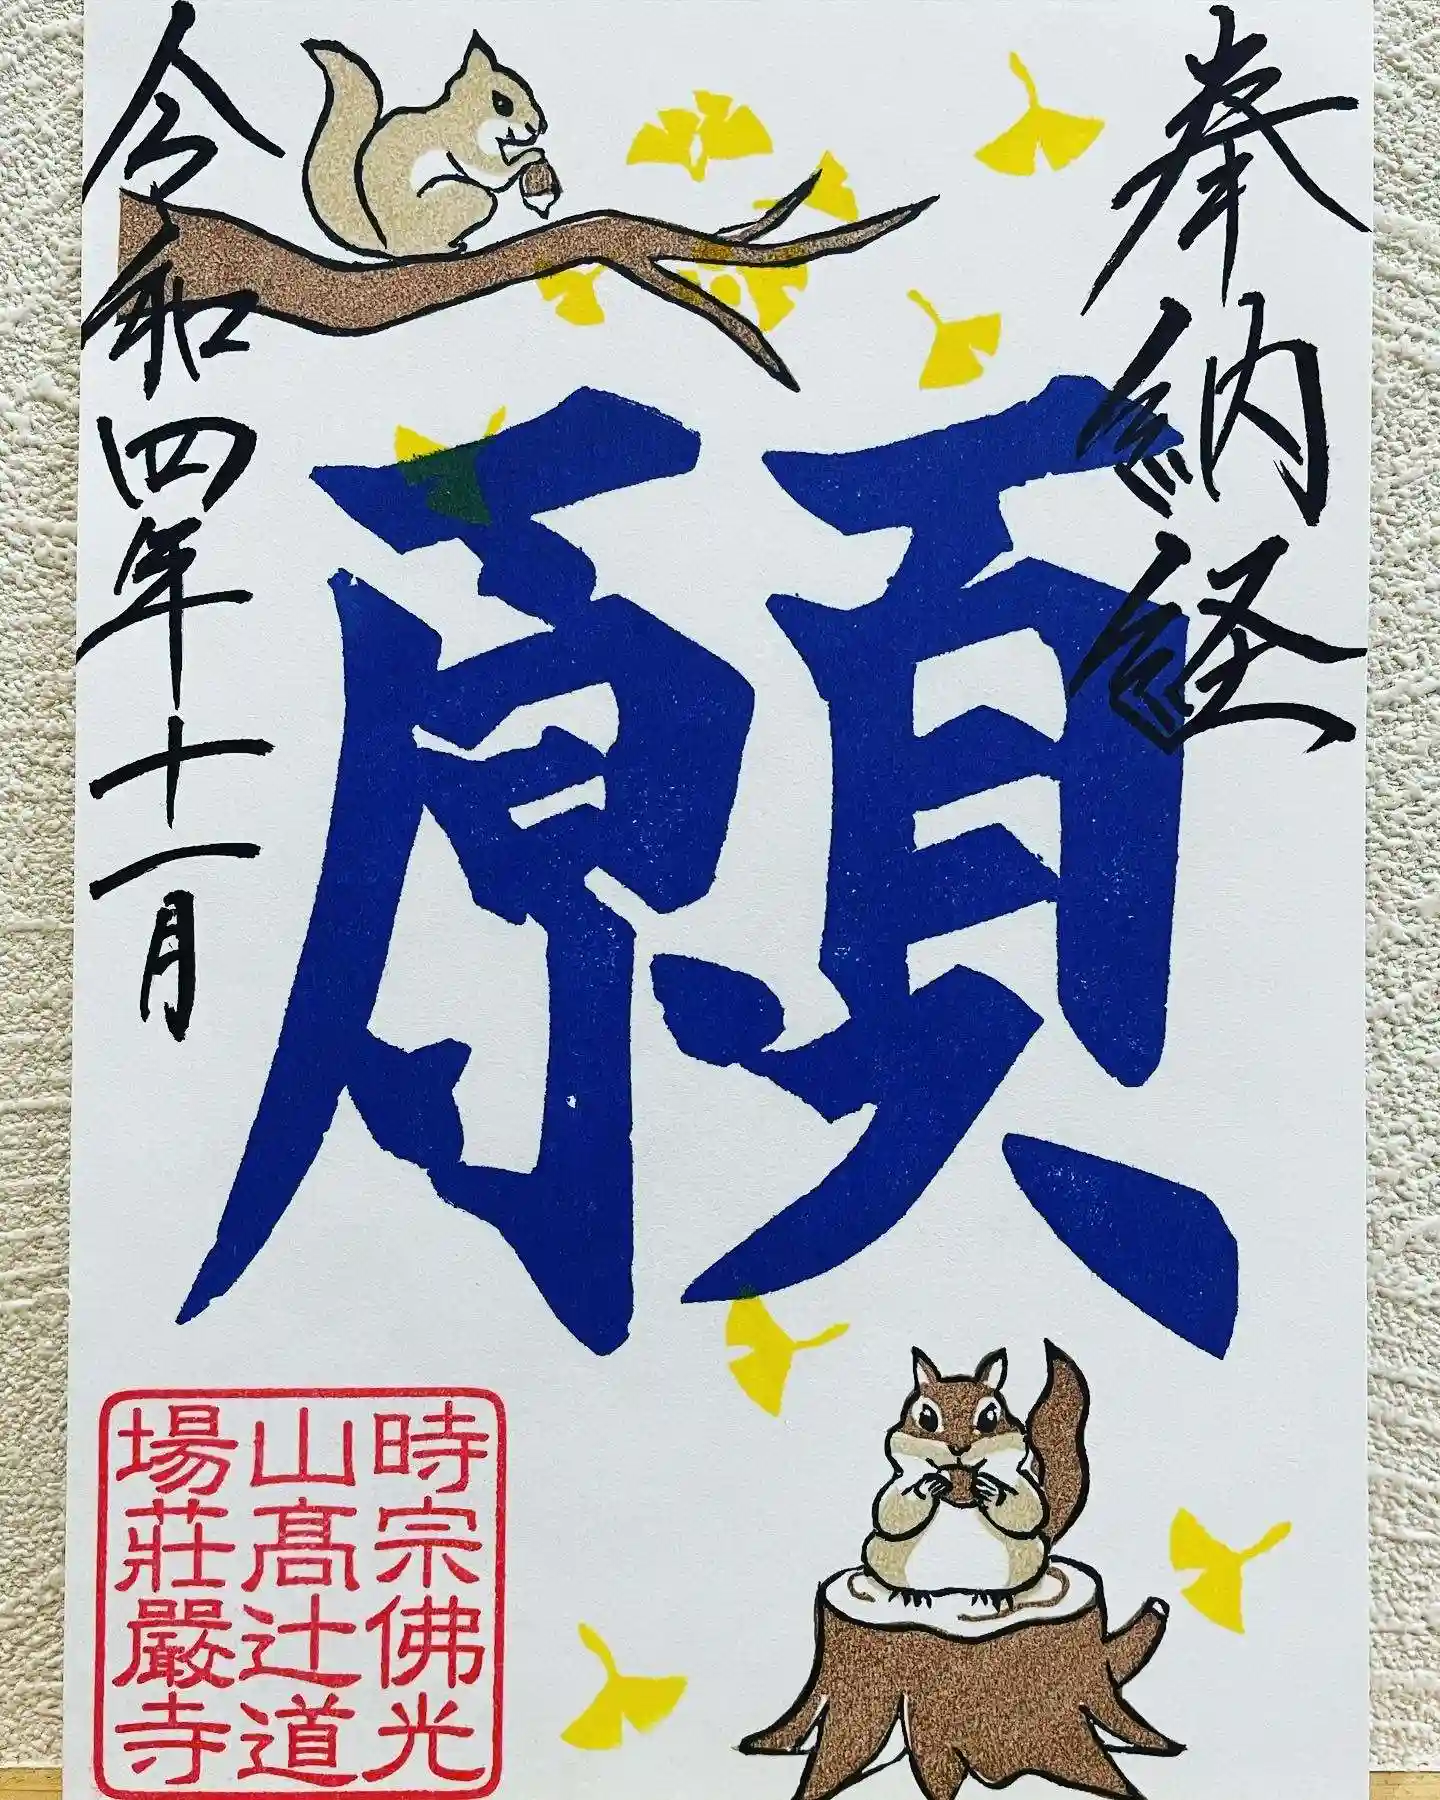 奉納経
願
令和四年十一月
時宗佛光
山髙辻道
場莊嚴寺